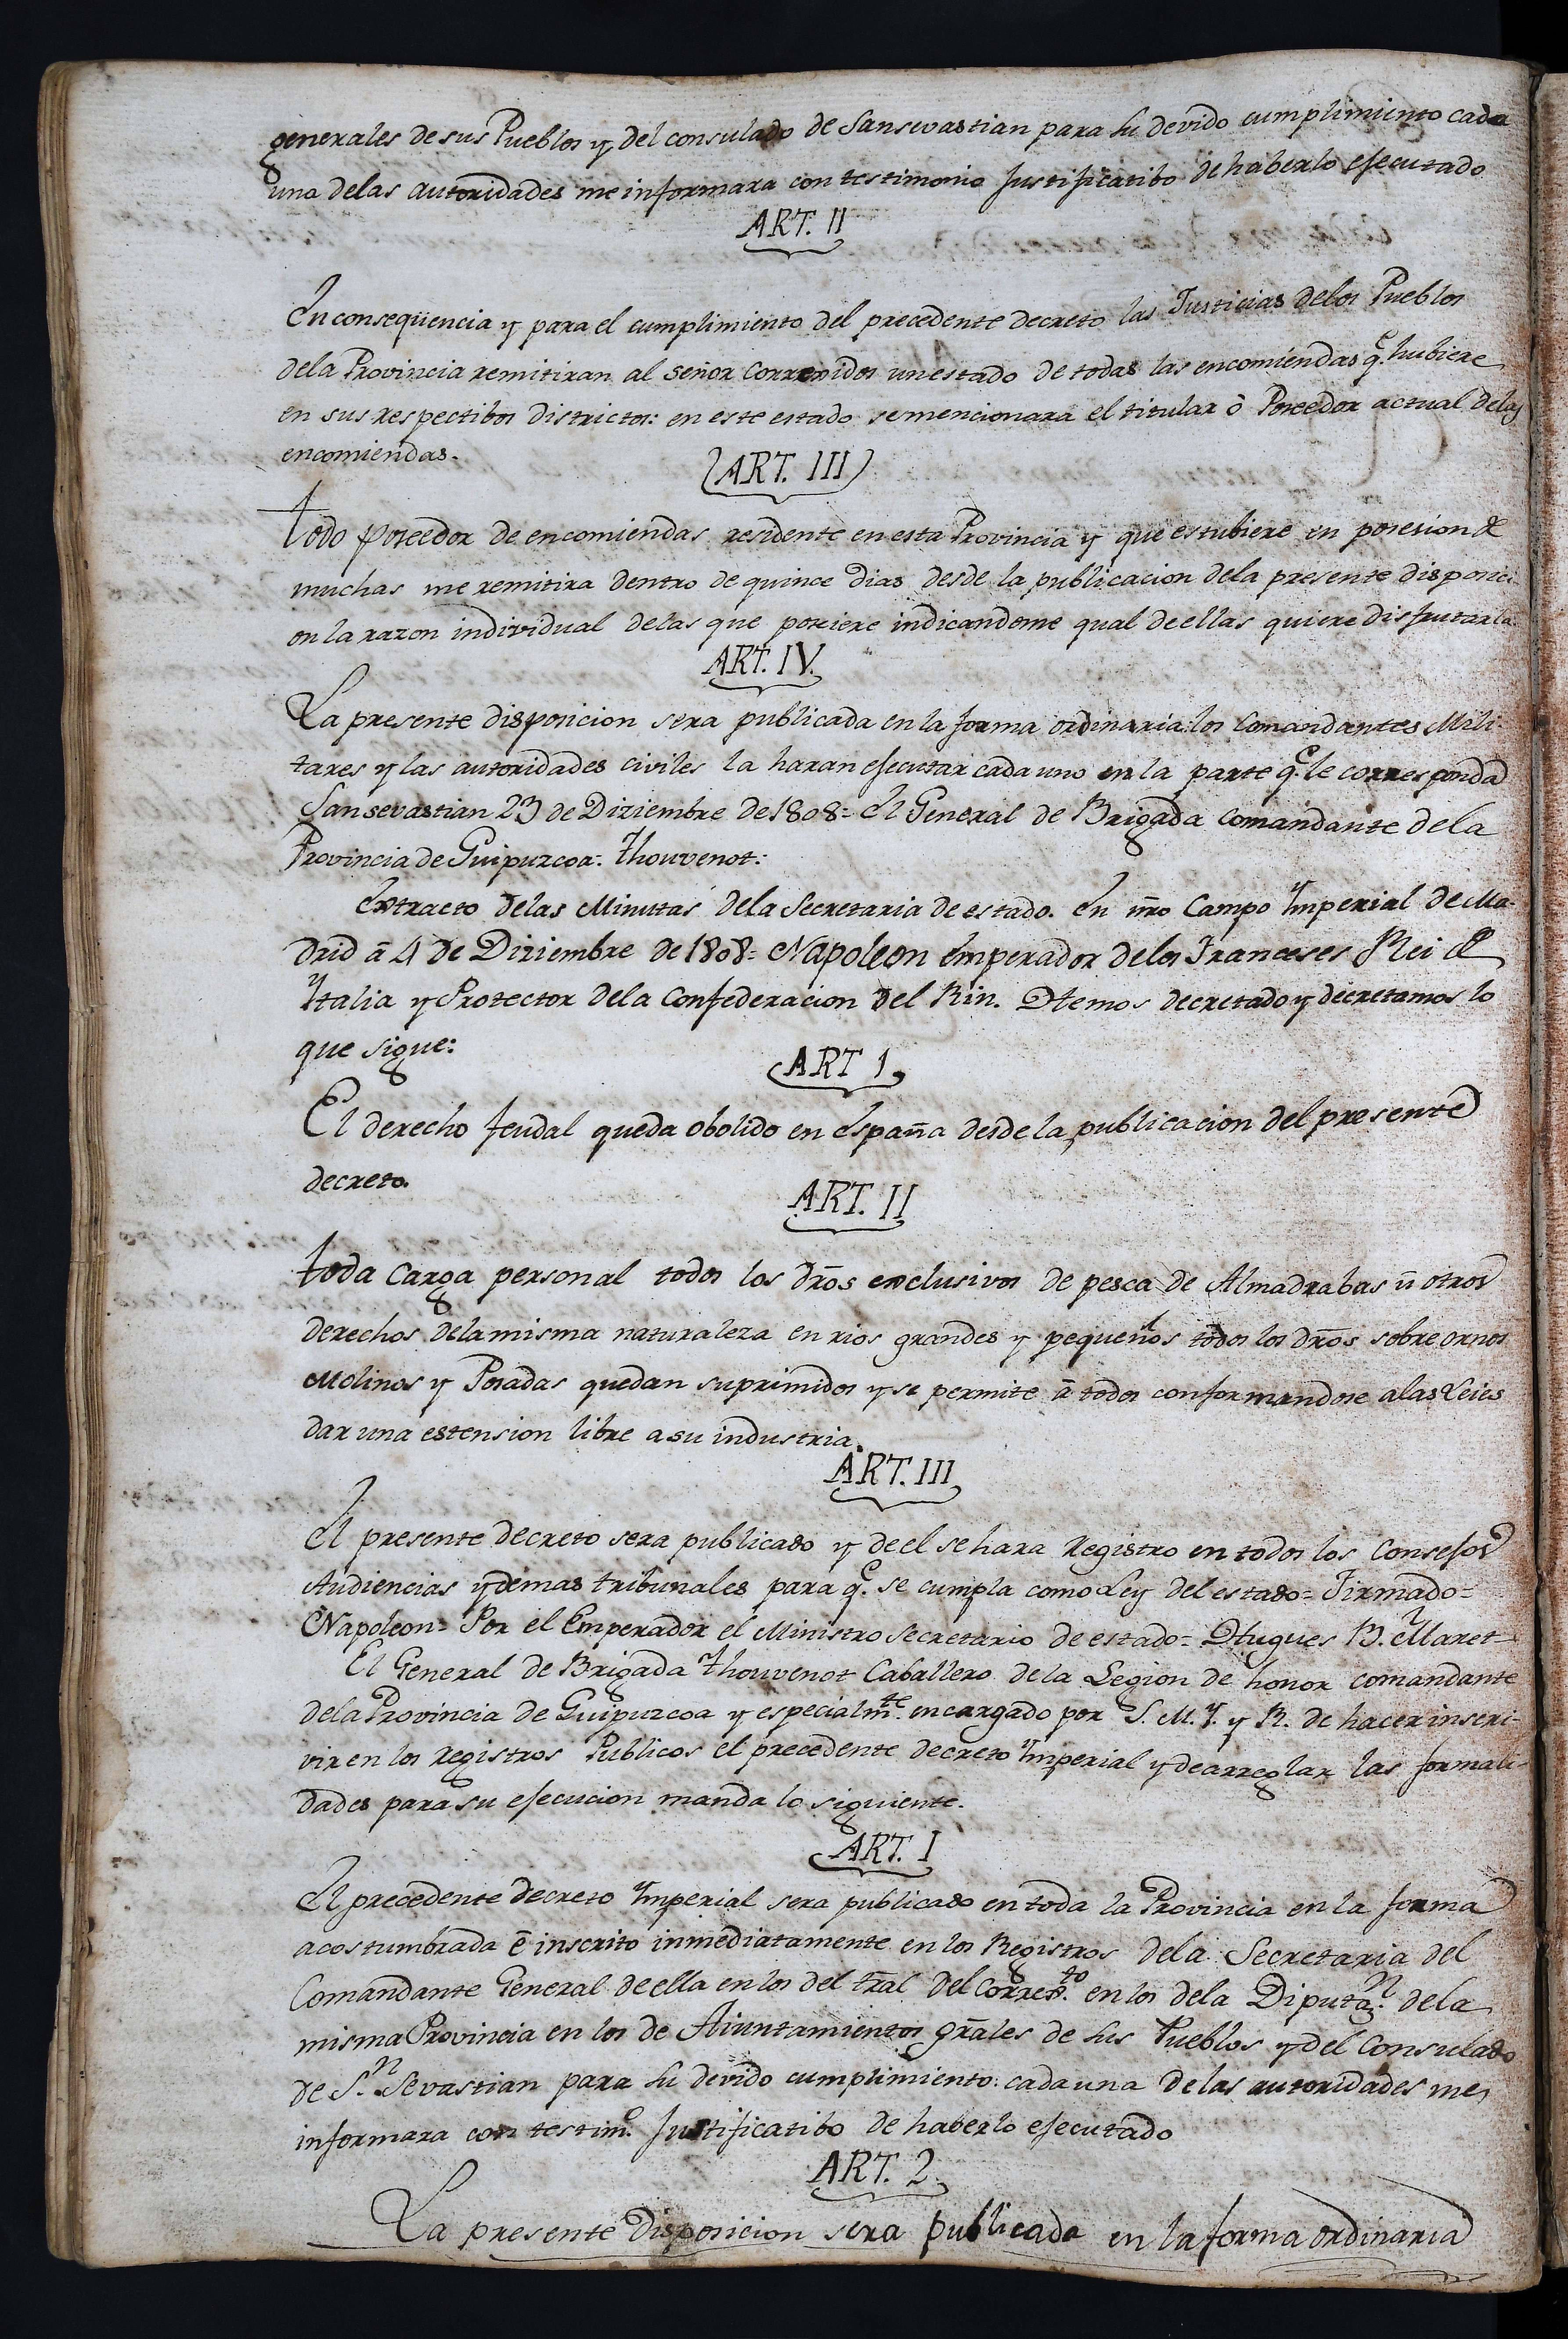 generales de sus Pueblos y del consulado de Sansevastian para su devido cumplimiento cada
una delas autoridades me informara con testimonio Justificatibo de haberlo ejecutado
ART. II
En conseqüencia y para el cumplimiento del precedente decreto las Justicias delos Pueblos
dela Provincia remitiran al señor Correxidor un estado de todas las encomiendas q.e hubiere
en sus respectibos districtos: en este estado se mencionara el titular ò Poseedor actual delas
encomiendas.
ART. III
todo poseedor de encomiendas residente en esta Provincia y que estubiere en posesion de
muchas me remitira dentro de quince dias desde la publicacion dela presente disposici
on la razon individual delas que poseiere indicandome qual de ellas quiere disfrutarla
ART. IV.
La presente disposicion sera publicada en la forma ordinaria: los Comandantes Mili-
tares y las autoridades civiles la haran ejecutar cada uno en la parte q.e le corresponda
Sansevastian 23 de Diziembre de 1808 = El General de Brigada Comandante dela
Provincia de Guipuzcoa: Thouvenot:
Extracto delas Minutas dela Secretaria de estado. En nr̃o Campo Ymperial de Ma-
drid ã 4 de Diziembre de 1808 = Napoleon Emperador delos Franceses Rei de
Ytalia y Protector dela Confederacion del Rin. Hemos decretado y decretamos lo
que sigue:
ART 1
El derecho feudal queda obolido en España desde la publicacion del presente
decreto.
ART. II
toda carga personal todos los dr̃os exclusivos de pesca de Almadrabas ũ otros
derechos dela misma naturaleza en rios grandes y pequeños todos los dr̃os sobre ornos
Molinos y Posadas quedan suprimidos y se permite ã todos conformandose alas Leies
dar una estension libre a su industria.
ART. III
El presente decreto sera publicado y de el se hara Registro en todos los Consejos
Audiencias y demas tribunales para q.e se cumpla como Ley del estado = Firmado =
Napoleon = Por el Emperador el Ministro Secretario de estado = Hugues B. Maret
El General de Brigada Thouvenot Caballero de la Legion de honor comandante
dela Provincia de Guipuzcoa y especialm.te encargado por S. M. Y. y R. de hacer inscri-
vir en los Registros Publicos el precedente decreto Ymperial y de arreglar las formali-
dades para su ejecucion manda lo siguiente.
ART. I
El precedente decreto Ymperial sera publicado en toda la Provincia en la forma
acostumbrada ẽ inscrito inmediatamente en los Registros dela Secretaria del
Comandante General de ella en los del tr̃al del Correx.to en los dela Diputaz.n dela
misma Provincia en los de Aiuntamientos gr̃ales de sus Pueblos y del Consulado
de S.n Sevastian para su devido cumplimiento: cada una de las autoridades me
informara con testim.o Justificatibo de haberlo ejecutado
ART. 2
La presente Disposicion sera publicada en la forma ordinaria